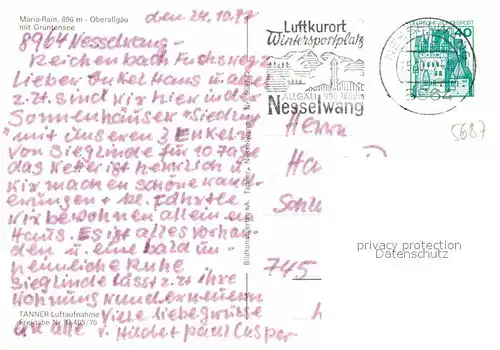 Maria-Rain, 896 m - Oberallgäu
mit Grüntensee
den 24.10.87
8964 Nesselwang -
Reichenbach Fuchsweg 2
Lieber Onkel Hans u. alle
z.zt. sind wir hier in der
Sonnenhäuser "Siedlung
"mit unseren 3 Enkeln
von Sieglinde für 10 Tage
das Wetter ist herrlich u.
wir machen schöne Wan-
derungen + Fahrten
wir bewohnen allein ein
Haus. Es ist alles vorhan-
den u. eine bald un-
heimliche Ruhe
Sieglinde lässt z.zt ihre
Wohnung rund erneuern
Viele liebe Grüsse
an alle v. Hilde + Paul Casper
TANNER-Luftaufnahme
Freigabe Nr. G 405/76
Bildkunstverlag A. Tanner - Nesselwang
Luftkurort
Wintersportplatz
ALLGÄU 900-1600m
Nesselwang
DEUTSCHE BUNDESPOST
40
8964
5687
Herrn
Ha
Schl
745
privacy protection
Datenschutz